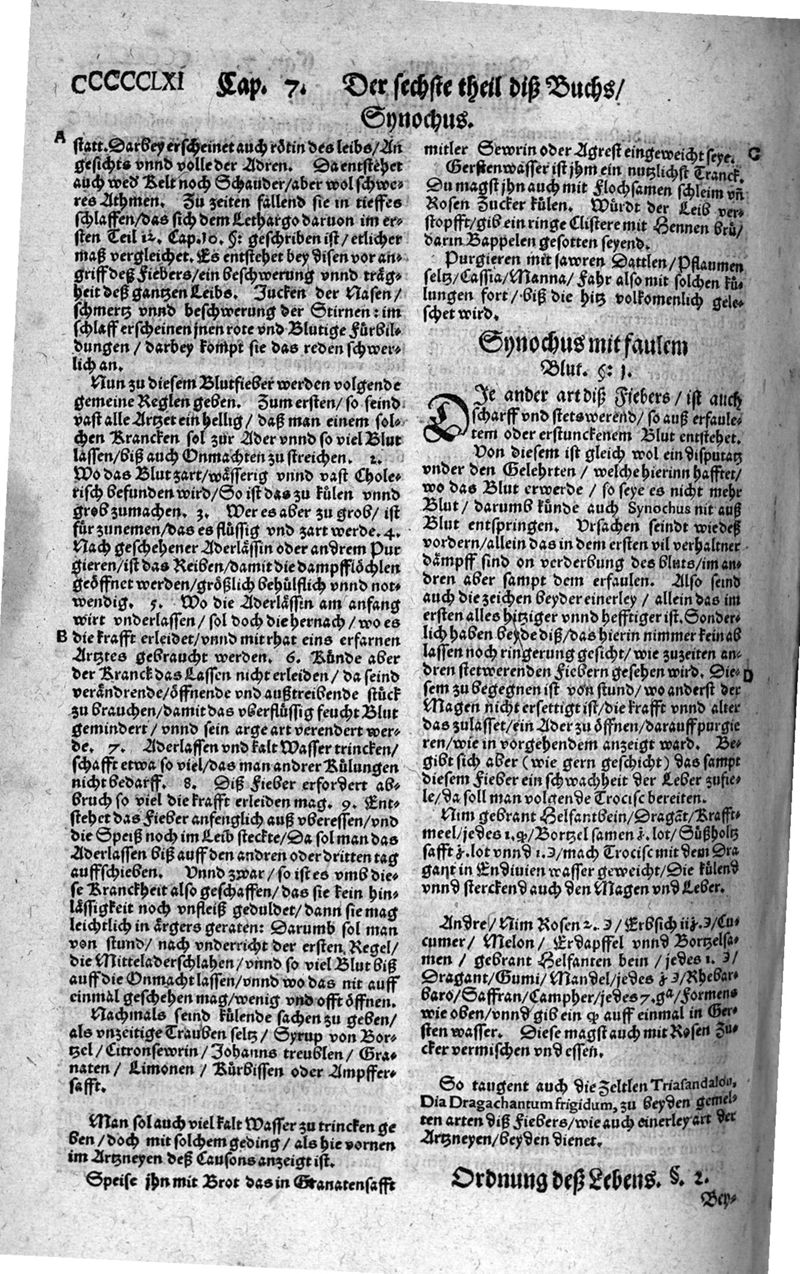 CCCCCCLXI Cap. 7. Der sechste theil diß Buchs/
Synochus.
A
statt. Darbey erscheinet auch rötin des leibs/An
gesichts vnnd volle der Adren. Da entstehet
auch wed' Kelt noch Schauder/aber wol schwe-
res Athmen. Zu zeiten fallend sie in tieffes
schlaffen/das sich dem Lethargo daruon im er-
sten Teil 12. Cap. 10. §: geschriben ist/etlicher
maß vergleichet. Es entstehet bey disen vor an-
griff deß Fiebers/ein beschwerung vnnd träg-
heit deß gantzen Leibs. Jucken der Nasen/
schmertz vnnd beschwerung der Stirnen: im
schlaff erscheinen jnen rote vnd Blutige Fürbil-
dungen/darbey kompt sie das reden schwer-
lich an.
Nun zu diesem Blutfieber werden volgende
gemeine Reglen geben. Zum ersten/so seind
vast alle Artzet ein hellig/daß man einem sol-
chen Krancken sol zur Ader vnnd so viel Blut
lassen/biß auch Onmachten zu streichen. 2.
Wo das Blut zart/wässerig vnnd vast Chole-
risch befunden wird/So ist das zu külen vnnd
grob zumachen. 3. Wer es aber zu grob/ist
für zunemen/das es flüssig vnd zart werde. 4.
Nach geschehener Aderlässin oder andrem Pur
gieren/ist das Reiben/damit die dampfflöchlen
geöffnet werden/größlich behülflich vnnd not-
wendig. 5. Wo die Aderlässin am anfang
wirt vnderlassen/sol doch die hernach/wo es
B
die krafft erleidet/vnnd mit rhat eins erfarnen
Artztes gebraucht werden. 6. Künde aber
der Kranck das Lassen nicht erleiden/da seind
verändrende/öffnende vnd außtreibende stück
zu brauchen/damit das vberflüssig feucht Blut
gemindert/vnnd sein arge art verendert wer-
de. 7. Aderlassen vnd kalt Wasser trincken/
schafft etwa so viel/das man andrer Külungen
nicht bedarff. 8. Diß Fieber erfordert ab-
bruch so viel die krafft erleiden mag. 9. Ent-
stehet das Fieber anfenglich auß vberessen/vnd
die Speiß noch im Leib steckte/Da sol man das
Aderlassen biß auff den andren oder dritten tag
auffschieben. Vnnd zwar/so ist es vmb die-
se Kranckheit also geschaffen/das sie kein hin-
lässigkeit noch vnfleiß geduldet/dann sie mag
leichtlich in ärgers geraten: Darumb sol man
von stund/nach vnderricht der ersten Regel/
die Mittelader schlahen/vnnd so viel Blut biß
auff die Onmacht lassen/vnnd wo das nit auff
einmal geschehen mag/wenig vnd offt öffnen.
Nachmals seind külende sachen zu geben/
als vnzeitige Trauben seltz/Syrup von Bor-
tzel/Citronsewrin/Johanns treublen/Gra-
naten/Limonen/Kürbissen oder Ampffer-
safft.
Man sol auch viel kalt Wasser zu trincken ge
ben/doch mit solchem geding/als hie vornen
im Artzneyen deß Causons anzeigt ist.
Speise jhn mit Brot das in Granatensafft
mitler Sewrin oder Agrest eingeweicht seye.
C
Gerstenwässer ist jhm ein nutzlichst Tranck.
Du magst jhn auch mit Flochsamen schleim vñ
Rosen Zucker külen. Würdt der Leib ver-
stopfft/gib ein ringe Clistere mit Hennen brü/
darin Bappelen gesotten seyend.
Purgieren mit sawren Dattlen/Pflaumen
seltz/Cassia/Manna/Fahr also mit solchen kü-
lungen fort/biß die hitz volkomenlich gele-
schet wird.
Synochus mit faulem
Blut. §: 1.
DJe ander art diß Fiebers/ist auch
scharff vnd stetswerend/so auß erfaule-
tem oder erstunckenem Blut entstehet.
Von diesem ist gleich wol ein disputatz
vnder den Gelehrten/welche hierinn hafftet/
wo das Blut erwerde/so seye es nicht mehr
Blut/darumb künde auch Synochus nit auß
Blut entspringen. Vrsachen seindt wie deß
vordern/allein das in dem ersten vil verhaltner
dämpff sind on verderbung des bluts/im an-
dren aber sampt dem erfaulen. Also seind
auch die zeichen beyder einerley/allein das im
ersten alles hitziger vnnd hefftiger ist. Sonder-
lich haben beyde diß/das hierin nimmer kein ab
lassen noch ringerung gesicht/wie zuzeiten an-
dren stetwerenden Fiebern gesehen wird. Die-
D
sem zu begegnen ist von stund/wo anderst der
Magen nicht ersettigt ist/die krafft vnnd alter
das zulasset/ein Ader zu öffnen/darauff purgie
ren/wie in vorgehendem anzeigt ward. Be-
gibt sich aber (wie gern geschicht) das sampt
diesem Fieber ein schwachheit der Leber zufie-
le/da soll man volgende Trocisc bereiten.
Nim gebrant Helfantbein/Dragãt/Krafft-
meel/jedes 1.q/Bortzel samen ʒ.lot/Süßholtz
safft ʒ.lot vnnd 1.Ʒ/mach Trocisc mit dem Dra
gant in Endiuien wasser geweicht/Die külend
vnnd sterckend auch den Magen vnd Leber.
Andre/Nim Rosen 2.Ʒ/Erbsich iiʒ.Ʒ/Cu-
cumer/Melon/Erdapffel vnnd Bortzelsa-
men/gebrant Helfanten bein/jedes 1.Ʒ/
Dragant/Gumi/Mandel/jedes ʒ Ʒ/Rhebar-
baro/Saffran/Campher/jedes 7.gª/Formens
wie oben/vnnd gib ein q auff einmal in Ger-
sten wasser. Diese magst auch mit Rosen Zu-
cker vermischen vnd essen.
So taugent auch die Zeltlen Triasandalon,
Dia Dragachantum frigidum, zu beyden gemel-
ten arten diß Fiebers/wie auch einerley art der
Artzneyen/beyden dienet.
Ordnung deß Lebens. §. 2.
Bey-